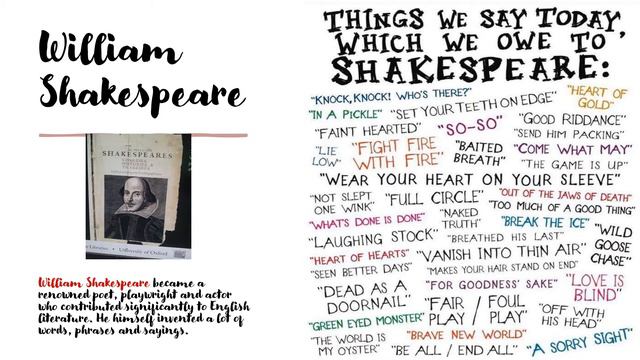 William
Shakespeare
SHAKESPEARES
COMEDIES
HISTORIES &
TRAGEDIES
Libraries • University of Oxford
William Shakespeare became a
renowned poet, playwright and actor
who contributed significantly to English
literature. He himself invented a lot of
words, phrases and sayings.
THINGS WE SAY TODAY
WHICH WE OWE TO
SHAKESPEARE:
"KNOCK, KNOCK! WHO'S THERE?" "HEART OF
GOLD"
"IN A PICKLE" "SET YOUR TEETH ON EDGE"
"FAINT HEARTED" "SO-SO" "GOOD RIDDANCE"
"SEND HIM PACKING"
"LIE
LOW" "FIGHT FIRE
WITH FIRE" "BAITED
BREATH" "COME WHAT MAY"
"THE GAME IS UP"
"WEAR YOUR HEART ON YOUR SLEEVE"
"NOT SLEPT
ONE WINK" "FULL CIRCLE" "OUT OF THE JAWS OF DEATH"
"TOO MUCH OF A GOOD THING"
"WHAT'S DONE IS DONE" "NAKED
TRUTH" "BREAK THE ICE" "WILD
GOOSE
CHASE"
"LAUGHING STOCK" "BREATHED HIS LAST"
"HEART OF HEARTS" "VANISH INTO THIN AIR"
"SEEN BETTER DAYS" "MAKES YOUR HAIR STAND ON END"
"DEAD AS A
DOORNAIL" "FOR GOODNESS' SAKE" "LOVE IS
BLIND"
"FAIR / FOUL
PLAY / PLAY" "OFF WITH
HIS HEAD"
"GREEN EYED MONSTER"
"THE WORLD IS
MY OYSTER" "BRAVE NEW WORLD"
"BE ALL / END ALL" "A SORRY SIGHT"